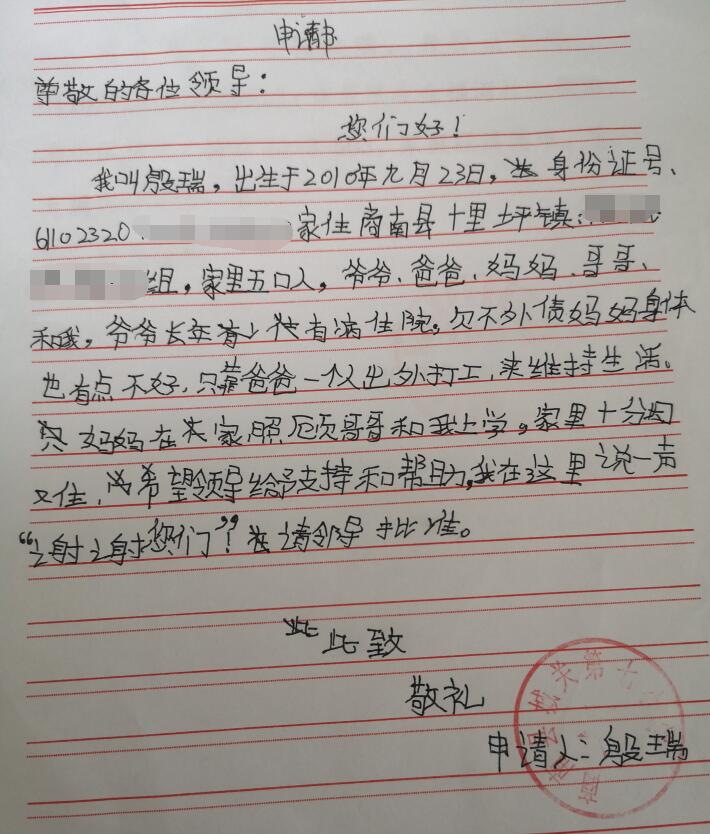 申请书
尊敬的各位领导:
您们好!
我叫殷瑞,出生于2010年九月23日,身份证号、
61102320 家住商南县十里坪镇:
组,家里五口人,爷爷、爸爸、妈妈、哥哥、
和哦,爷爷长年有病住院,欠不外债妈妈身体
也有点不好,只靠爸爸一个人出外打工,来维持生活。
妈妈在家照顾哥哥和我上学。家里十分困
难,希望领导给予支持和帮助,我在这里说一声
“谢谢您们”!请领导批准。
此致
敬礼
申请人:殷瑞
城关第